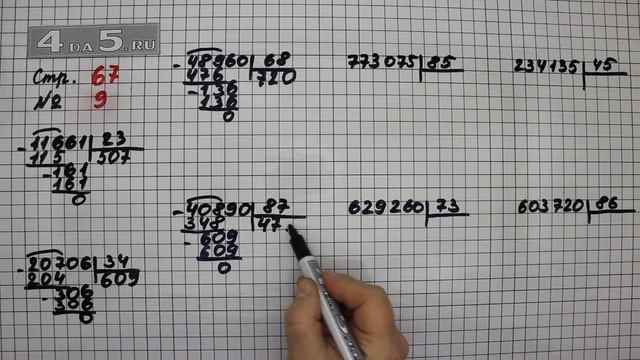 4 DA 5.RU
Стр. 67
№ 9
11661 23
115 507
- 161
161
0
- 20706 34
204 609
- 306
306
0
- 48960 68
476 720
- 136
136
0
- 40890 87
348 47
- 609
609
0
773075 85
629260 73
234135 45
603720 86